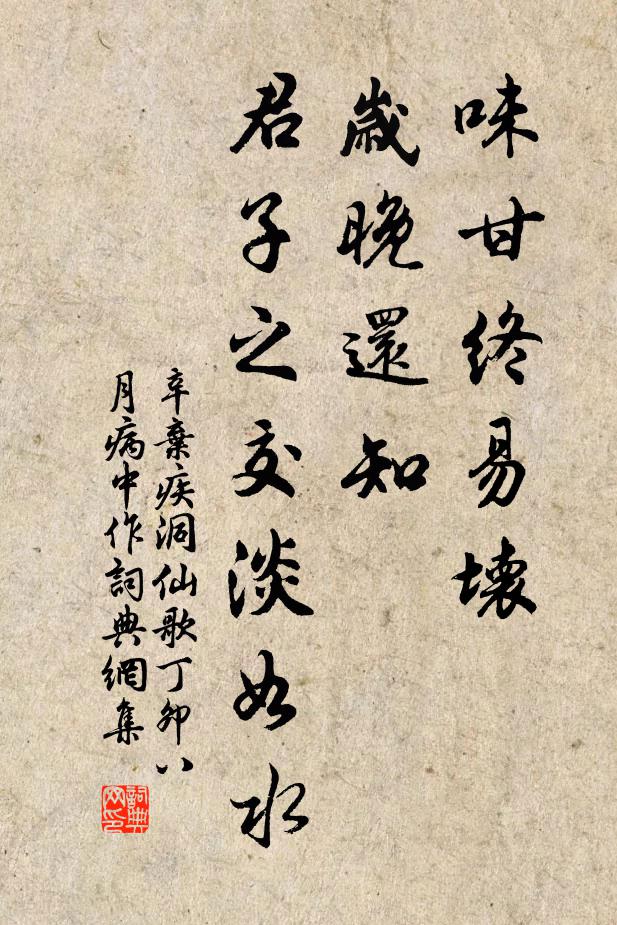 味甘終易壞
歲晚還知
君子之交淡如水
辛棄疾洞仙歌丁卯八
月病中作詞典網集
詞典
网印